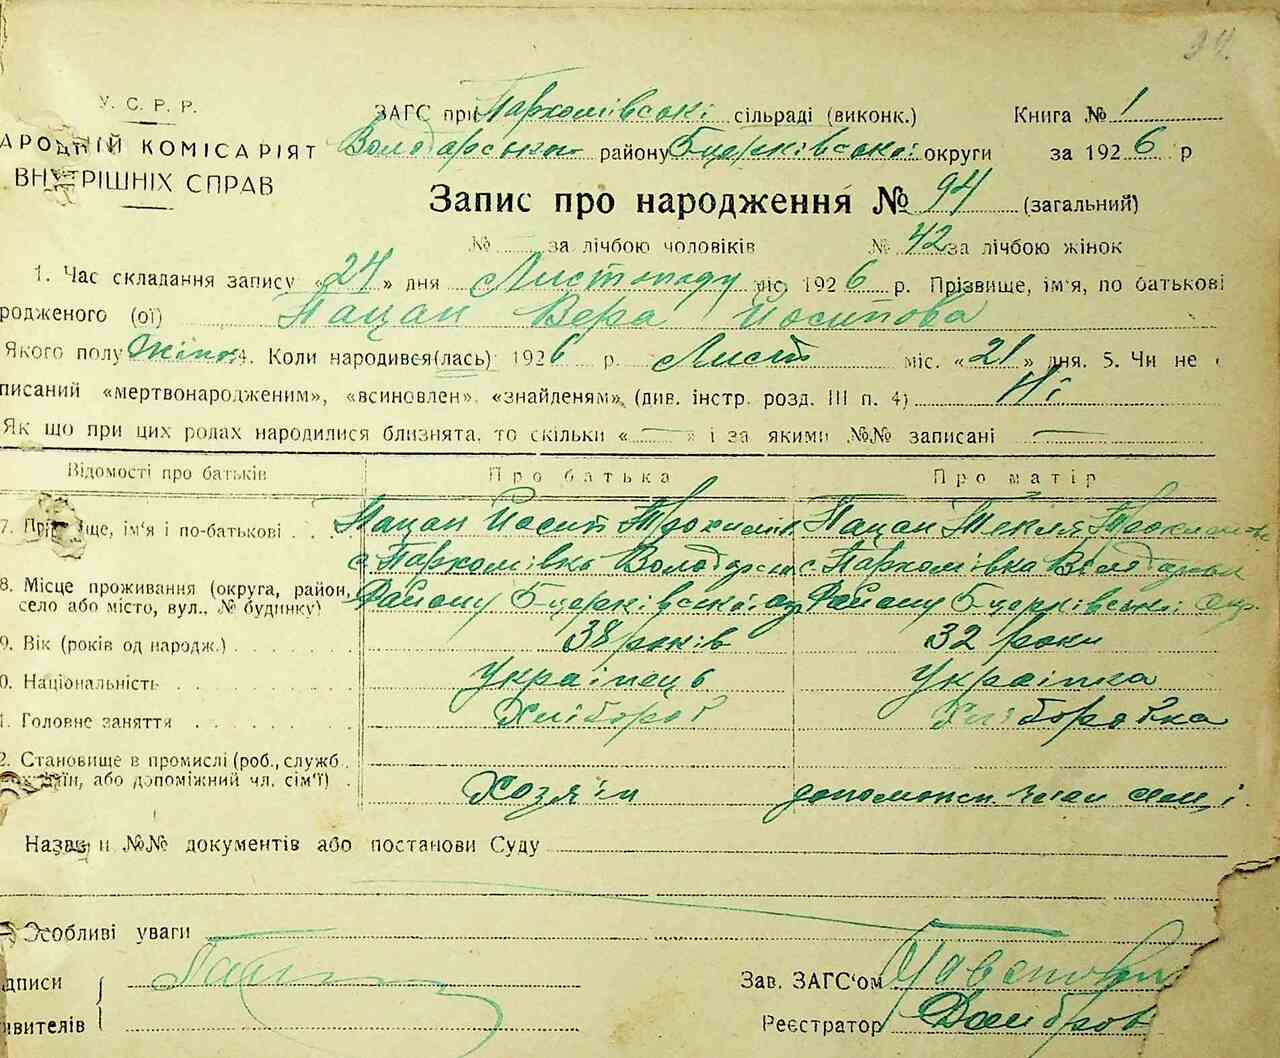 У. С. Р. Р.
АРОДНІЙ КОМІСАРІЯТ
ВНУТРІШНІХ СПРАВ
ЗАГС при Пархомівські сільраді (виконк.) Книга № 1
Володарськ району Бцерківської округи за 1926 р
Запис про народження № 94 (загальний)
№ за лічбою чоловіків № 42 за лічбою жінок
1. Час складання запису «24» дня Листопаду міс. 1926 р. Прізвище, ім'я, по батькові
родженого (ої) Пацан Вера Йосипова
Якого полу Жіноч 4. Коли народився(лась) 1926 р. Лист міс. «21» дня. 5. Чи не
писаний «мертвонародженим», «всиновлен», «знайденям», (див. інстр. розд. III п. 4) Ні
Як що при цих родах народилися близнята, то скільки « — » і за якими №№ записані —
Відомості про батьків Про батька Про матір
7. Прізвище, ім'я і по-батькові Пацан Йосип Пацан Текля
с. Пархомівка с. Пархомівка
8. Місце проживання (округа, район, село або місто, вул., № будинку) Району Бцерківської ок Району Бцерківські окр.
9. Вік (років од народж.) 38 років 32 роки
0. Національність Українець Українка
1. Головне заняття Хлібороб Хліборобка
2. Становище в промислі (роб., служб.
хазяїн, або допоміжний чл. сім'ї) Хозяін
Назва и №№ документів або постанови Суду
Особливі уваги
дписи Зав. ЗАГС'ом
явителів Реєстратор